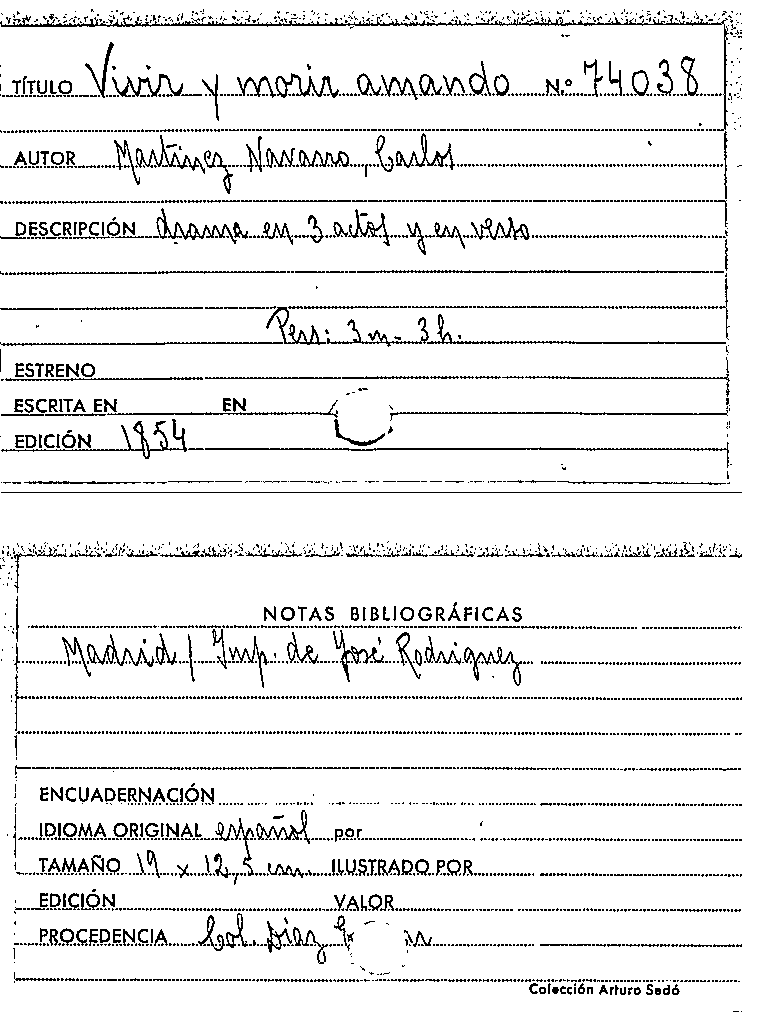 TÍTULO Vivir y morir amando N.º 74038
AUTOR Martinez Navarro, Carlos
DESCRIPCIÓN drama en 3 actos y en verso
Pers: 3 m - 3 h.
ESTRENO
ESCRITA EN EN
EDICIÓN 1854
NOTAS BIBLIOGRÁFICAS
Madrid / Imp. de José Rodriguez
ENCUADERNACIÓN
IDIOMA ORIGINAL español por
TAMAÑO 19 x 12,5 cm. ILUSTRADO POR
EDICIÓN VALOR
PROCEDENCIA Col. Díaz
Colección Arturo Sedó